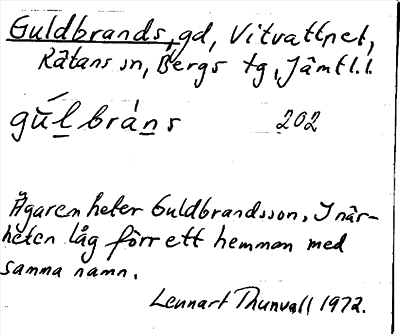 Guldbrands, gd, Vitvattnet,
Rätans sn, Bergs tg, Jämtl.l.
gŭ́l̲ brán̲s 202
Ägaren heter Guldbrandsson. I när-
heten låg förr ett hemman med
samma namn.
Lennart Thunvall 1972.